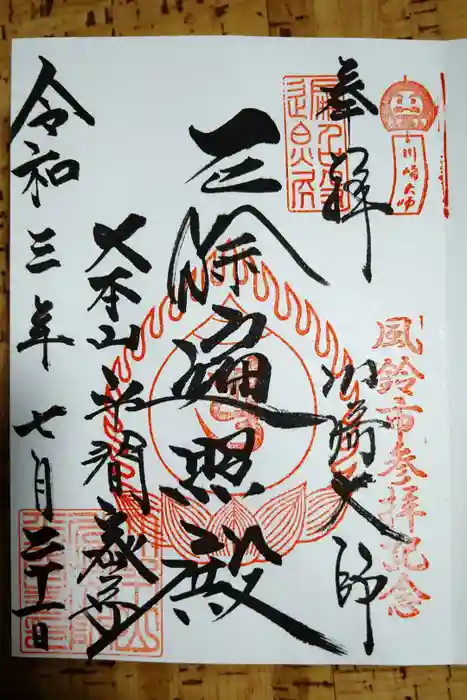 奉拝
川崎大師
風鈴市参拝記念
川崎大師
厄除遍照殿
大本山平間寺
令和三年七月二十一日